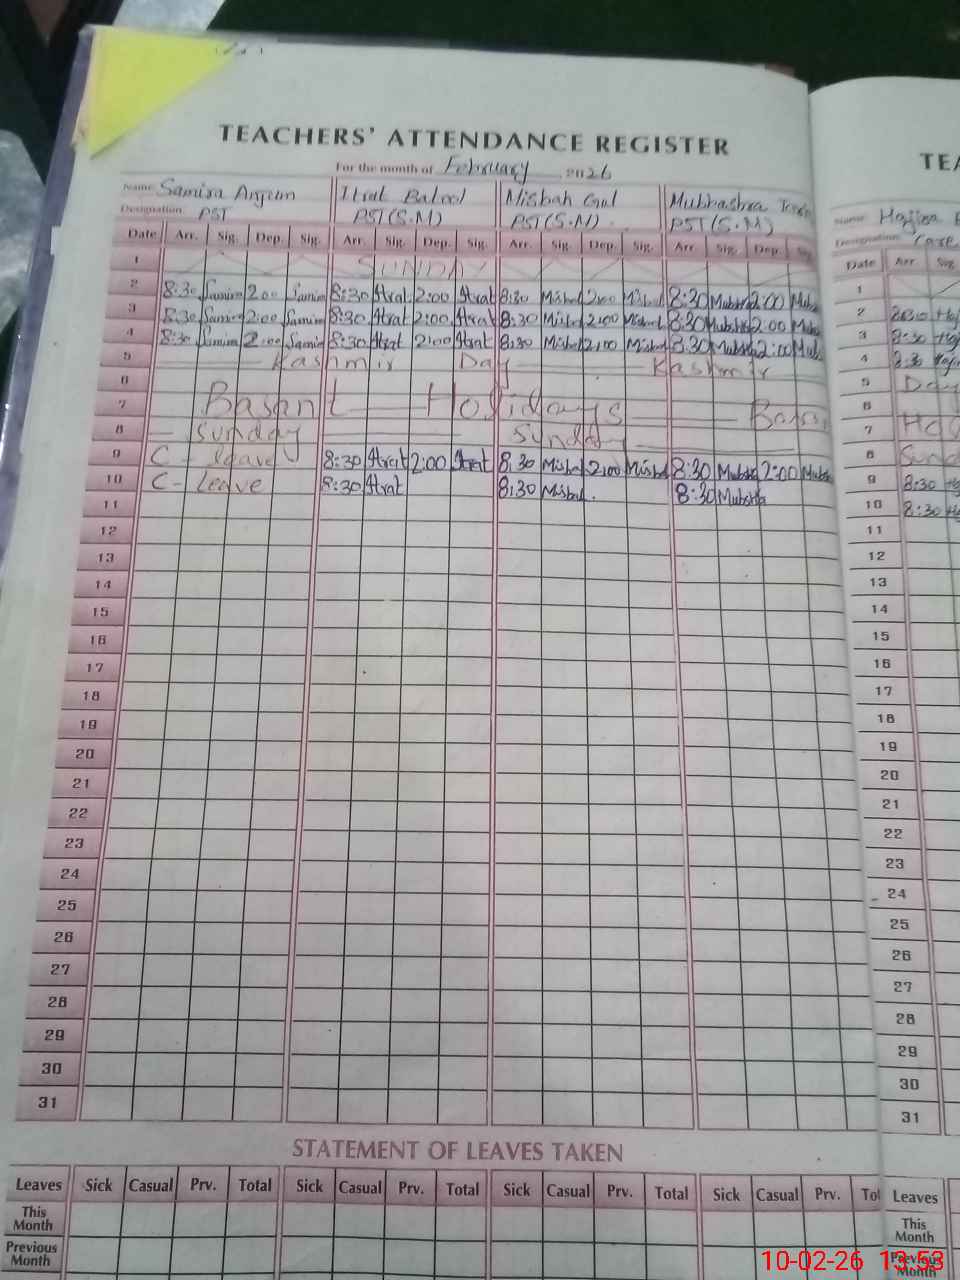 TEACHERS' ATTENDANCE REGISTER
For the month of February 2026
Name Samina Anjum Itrat Batool Misbah Gul Mubashra
Designation PST PST(S.M) PST(S.M) PST(S.M)
Date Arr. Sig. Dep. Sig. Arr. Sig. Dep. Sig. Arr. Sig. Dep. Sig. Arr. Sig. Dep. Sig.
1 SUNDAY
2 8:30 Samina 2:00 Samina 8:30 Itrat 2:00 Itrat 8:30 Misbah 2:00 Misbah 8:30 Mubshra 2:00 Mubs
3 8:30 Samina 2:00 Samina 8:30 Itrat 2:00 Itrat 8:30 Misbah 2:00 Misbah 8:30 Mubshra 2:00 Mubs
4 8:30 Samina 2:00 Samina 8:30 Itrat 2:00 Itrat 8:30 Misbah 2:00 Misbah 8:30 Mubshra 2:00 Mubs
5 Kashmir Day Kashmir
6
7 Basant Holidays Basa
8 Sunday Sunday
9 C - leave 8:30 Itrat 2:00 Itrat 8:30 Misbah 2:00 Misbah 8:30 Mubshra 2:00 Mubs
10 C - Leave 8:30 Itrat 8:30 Misbah 8:30 Mubshra
11
12
13
14
15
16
17
18
19
20
21
22
23
24
25
26
27
28
29
30
31
STATEMENT OF LEAVES TAKEN
Leaves Sick Casual Prv. Total Sick Casual Prv. Total Sick Casual Prv. Total Sick Casual Prv. Tot
This Month
Previous Month
TEA
Name
Designation Care
Date Arr. Sig
1
2 8:30
3 8:30
4 8:30
5 Day
6
7 Hol
8 Sund
9 8:30
10 8:30
11
12
13
14
15
16
17
18
19
20
21
22
23
24
25
26
27
28
29
30
31
Leaves
This Month
Previous Month
10-02-26 13:53